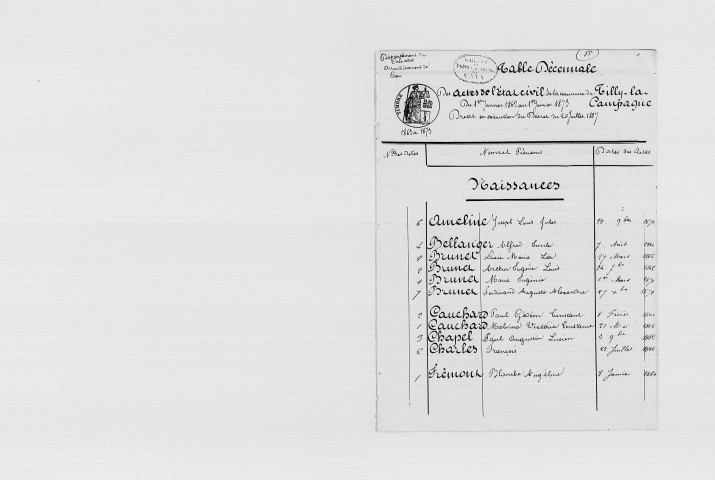 Département du
Calvados
Arrondissement de
Caen
85
Table Décennale
Des actes de l'état civil de la commune de Tilly-la-
Campagne
Du 1er Janvier 1863 au 1er Janvier 1873
Dressé en exécution du Décret du 20 Juillet 1807
TIMBRE
1863 à 1873
Nos des Actes Nom et Prénoms Dates des Actes
Naissances
6 Ameline Joseph Louis Jules 9bre
Bellanger Alfred Emile 7 Août
Brunet Marie Léa 27 Mars
Brunet Arthur Eugène Louis 7bre
Brunet Marie Eugénie 1er Mars
7 Brunet Ferdinand Auguste Alexandre 27 Xbre
2 Cauchard Paul Gaston Constant
1 Cauchard Victoria Constance 21 Mai
3 Chapel Paul Augustin Lucien 9bre
Charles François Juillet
1 Frémont Blanche Angéline 8 Janvier